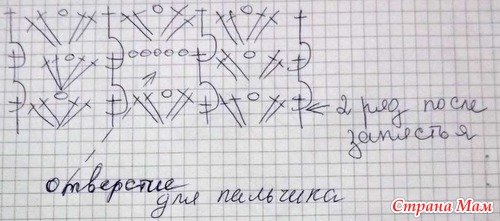 2 ряд после
запястья
отверстие
для пальчика
Страна Мам